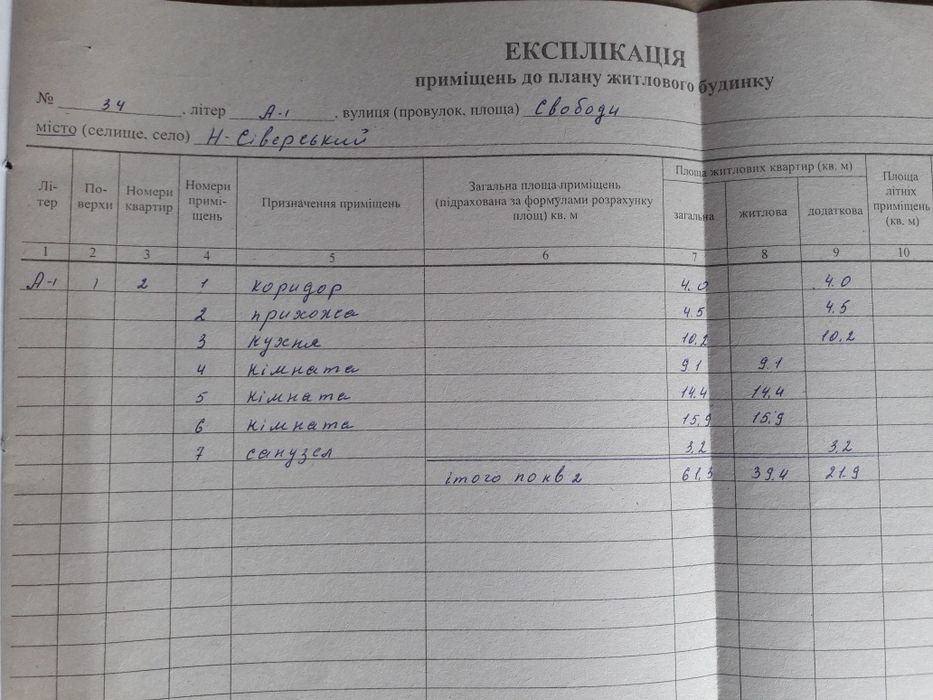 ЕКСПЛІКАЦІЯ
приміщень до плану житлового будинку
№ 34 , літер А-І , вулиця (провулок, площа) Свободи
місто (селище, село) Н-Сіверський
Лі-тер По-верхи Номери квартир Номери примі-щень Призначення приміщень Загальна площа приміщень (підрахована за формулами розрахунку площ) кв. м Площа житлових квартир (кв. м) загальна житлова додаткова Площа літніх приміщень (кв. м)
1 2 3 4 5 6 7 8 9 10
А-І 1 2 1 коридор 4.0 4.0
2 прихожа 4.5 4.5
3 кухня 10.2 10.2
4 кімната 9.1 9.1
5 кімната 14.4 14.4
6 кімната 15.9 15.9
7 санузел 3.2 3.2
ітого по кв 2 61.3 39.4 21.9